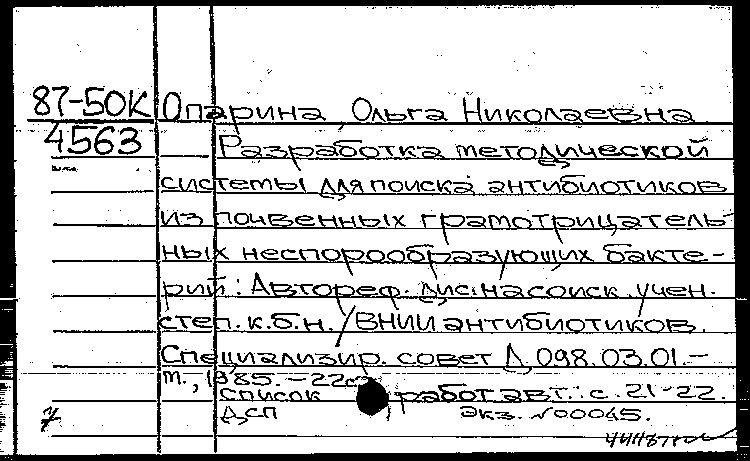 87-50К Опарина, Ольга Николаевна
4563 Разработка методической
системы для поиска антибиотиков
из почвенных грамотрицатель-
ных неспорообразующих бакте-
рий: Автореф. дис. на соиск. учен.
степ. к.б.н. / ВНИИ антибиотиков.
Специализир. совет Д 098.03.01.-
т., 1985. - 22 с
список работ авт.: с. 21-22.
ДСП Экз. №00045.